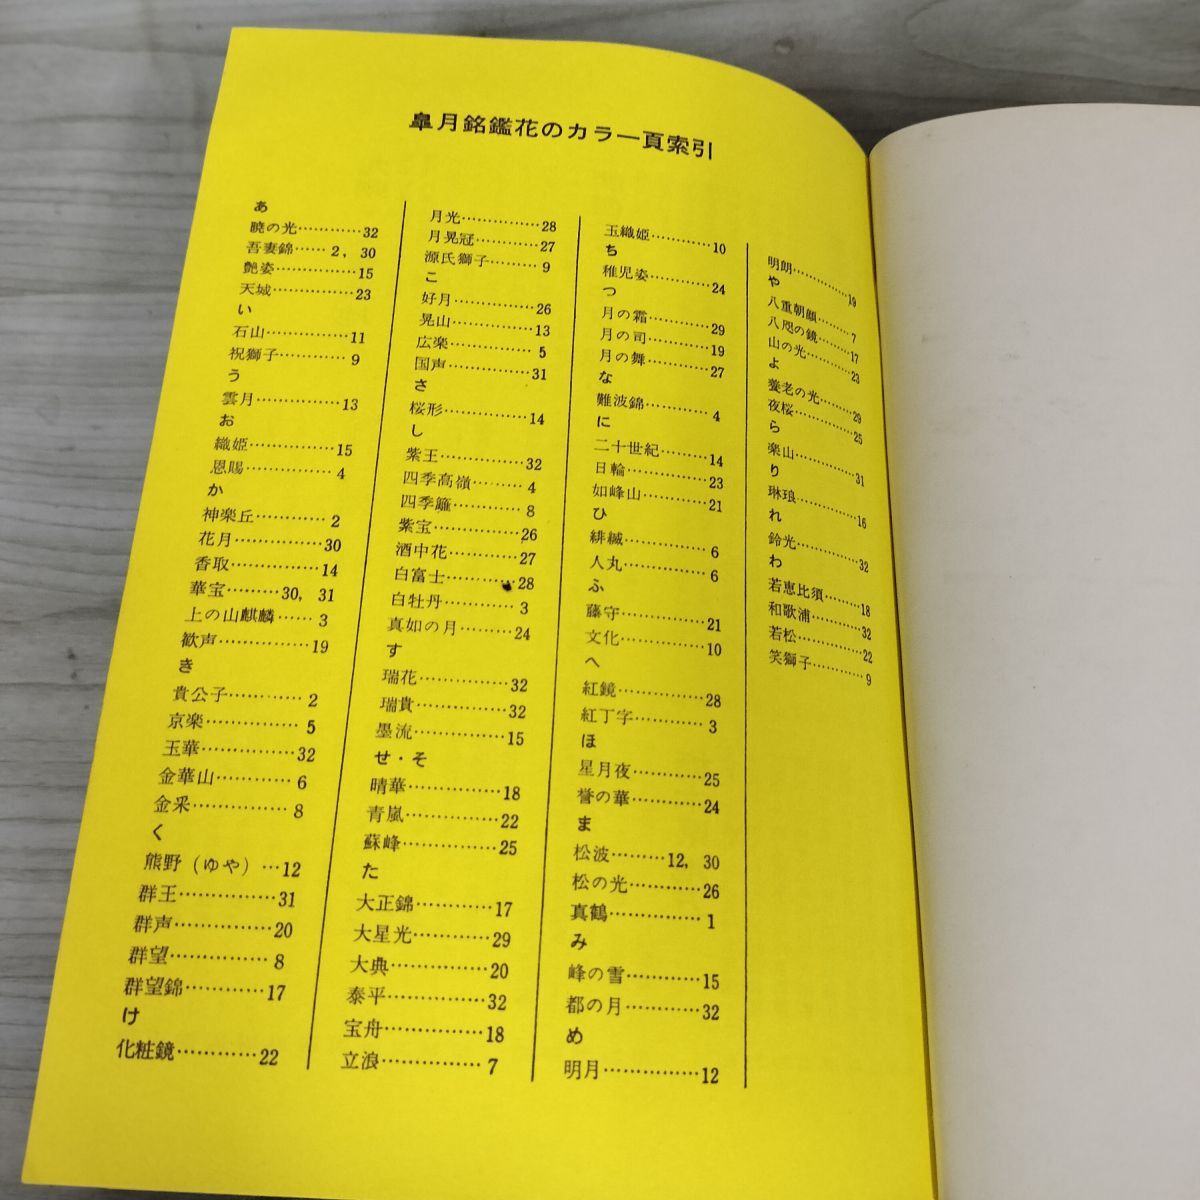 皐月銘鑑花のカラー頁索引
あ
暁の光…………32
吾妻錦……2，30
艶姿……………15
天城……………23
い
石山……………11
祝獅子…………9
う
雲月……………13
お
織姫……………15
恩賜……………4
か
神楽丘…………2
花月……………30
香取……………14
華宝………30，31
上の山麒麟……3
歓声……………19
き
貴公子…………2
京楽……………5
玉華……………32
金華山…………6
金采……………8
く
熊野（ゆや）…12
群王……………31
群声……………20
群望……………8
群望錦…………17
け
化粧鏡…………22
月光……………28
月晃冠…………27
源氏獅子………9
こ
好月……………26
晃山……………13
広楽……………5
国声……………31
さ
桜形……………14
し
紫王……………32
四季高嶺………4
四季籬…………8
紫宝……………26
酒中花…………27
白富士…………28
白牡丹…………3
真如の月………24
す
瑞花……………32
瑞貴……………32
墨流……………15
せ・そ
晴華……………18
青嵐……………22
蘇峰……………25
た
大正錦…………17
大星光…………29
大典……………20
泰平……………32
宝舟……………18
立浪……………7
玉織姫…………10
ち
稚児姿…………24
つ
月の霜…………29
月の司…………19
月の舞…………27
な
難波錦…………4
に
二十世紀………14
日輪……………23
如峰山…………21
ひ
緋縅……………6
人丸……………6
ふ
藤守……………21
文化……………10
へ
紅鏡……………28
紅丁字…………3
ほ
星月夜…………25
誉の華…………24
ま
松波………12，30
松の光…………26
真鶴……………1
み
峰の雪…………15
都の月…………32
め
明月……………12
明朗……………19
や
八重朝顔………7
八咫の鏡………17
山の光…………23
よ
養老の光………29
夜桜……………25
ら
楽山……………31
り
琳琅……………16
れ
鈴光……………32
わ
若恵比須………18
和歌浦…………32
若松……………22
笑獅子…………9